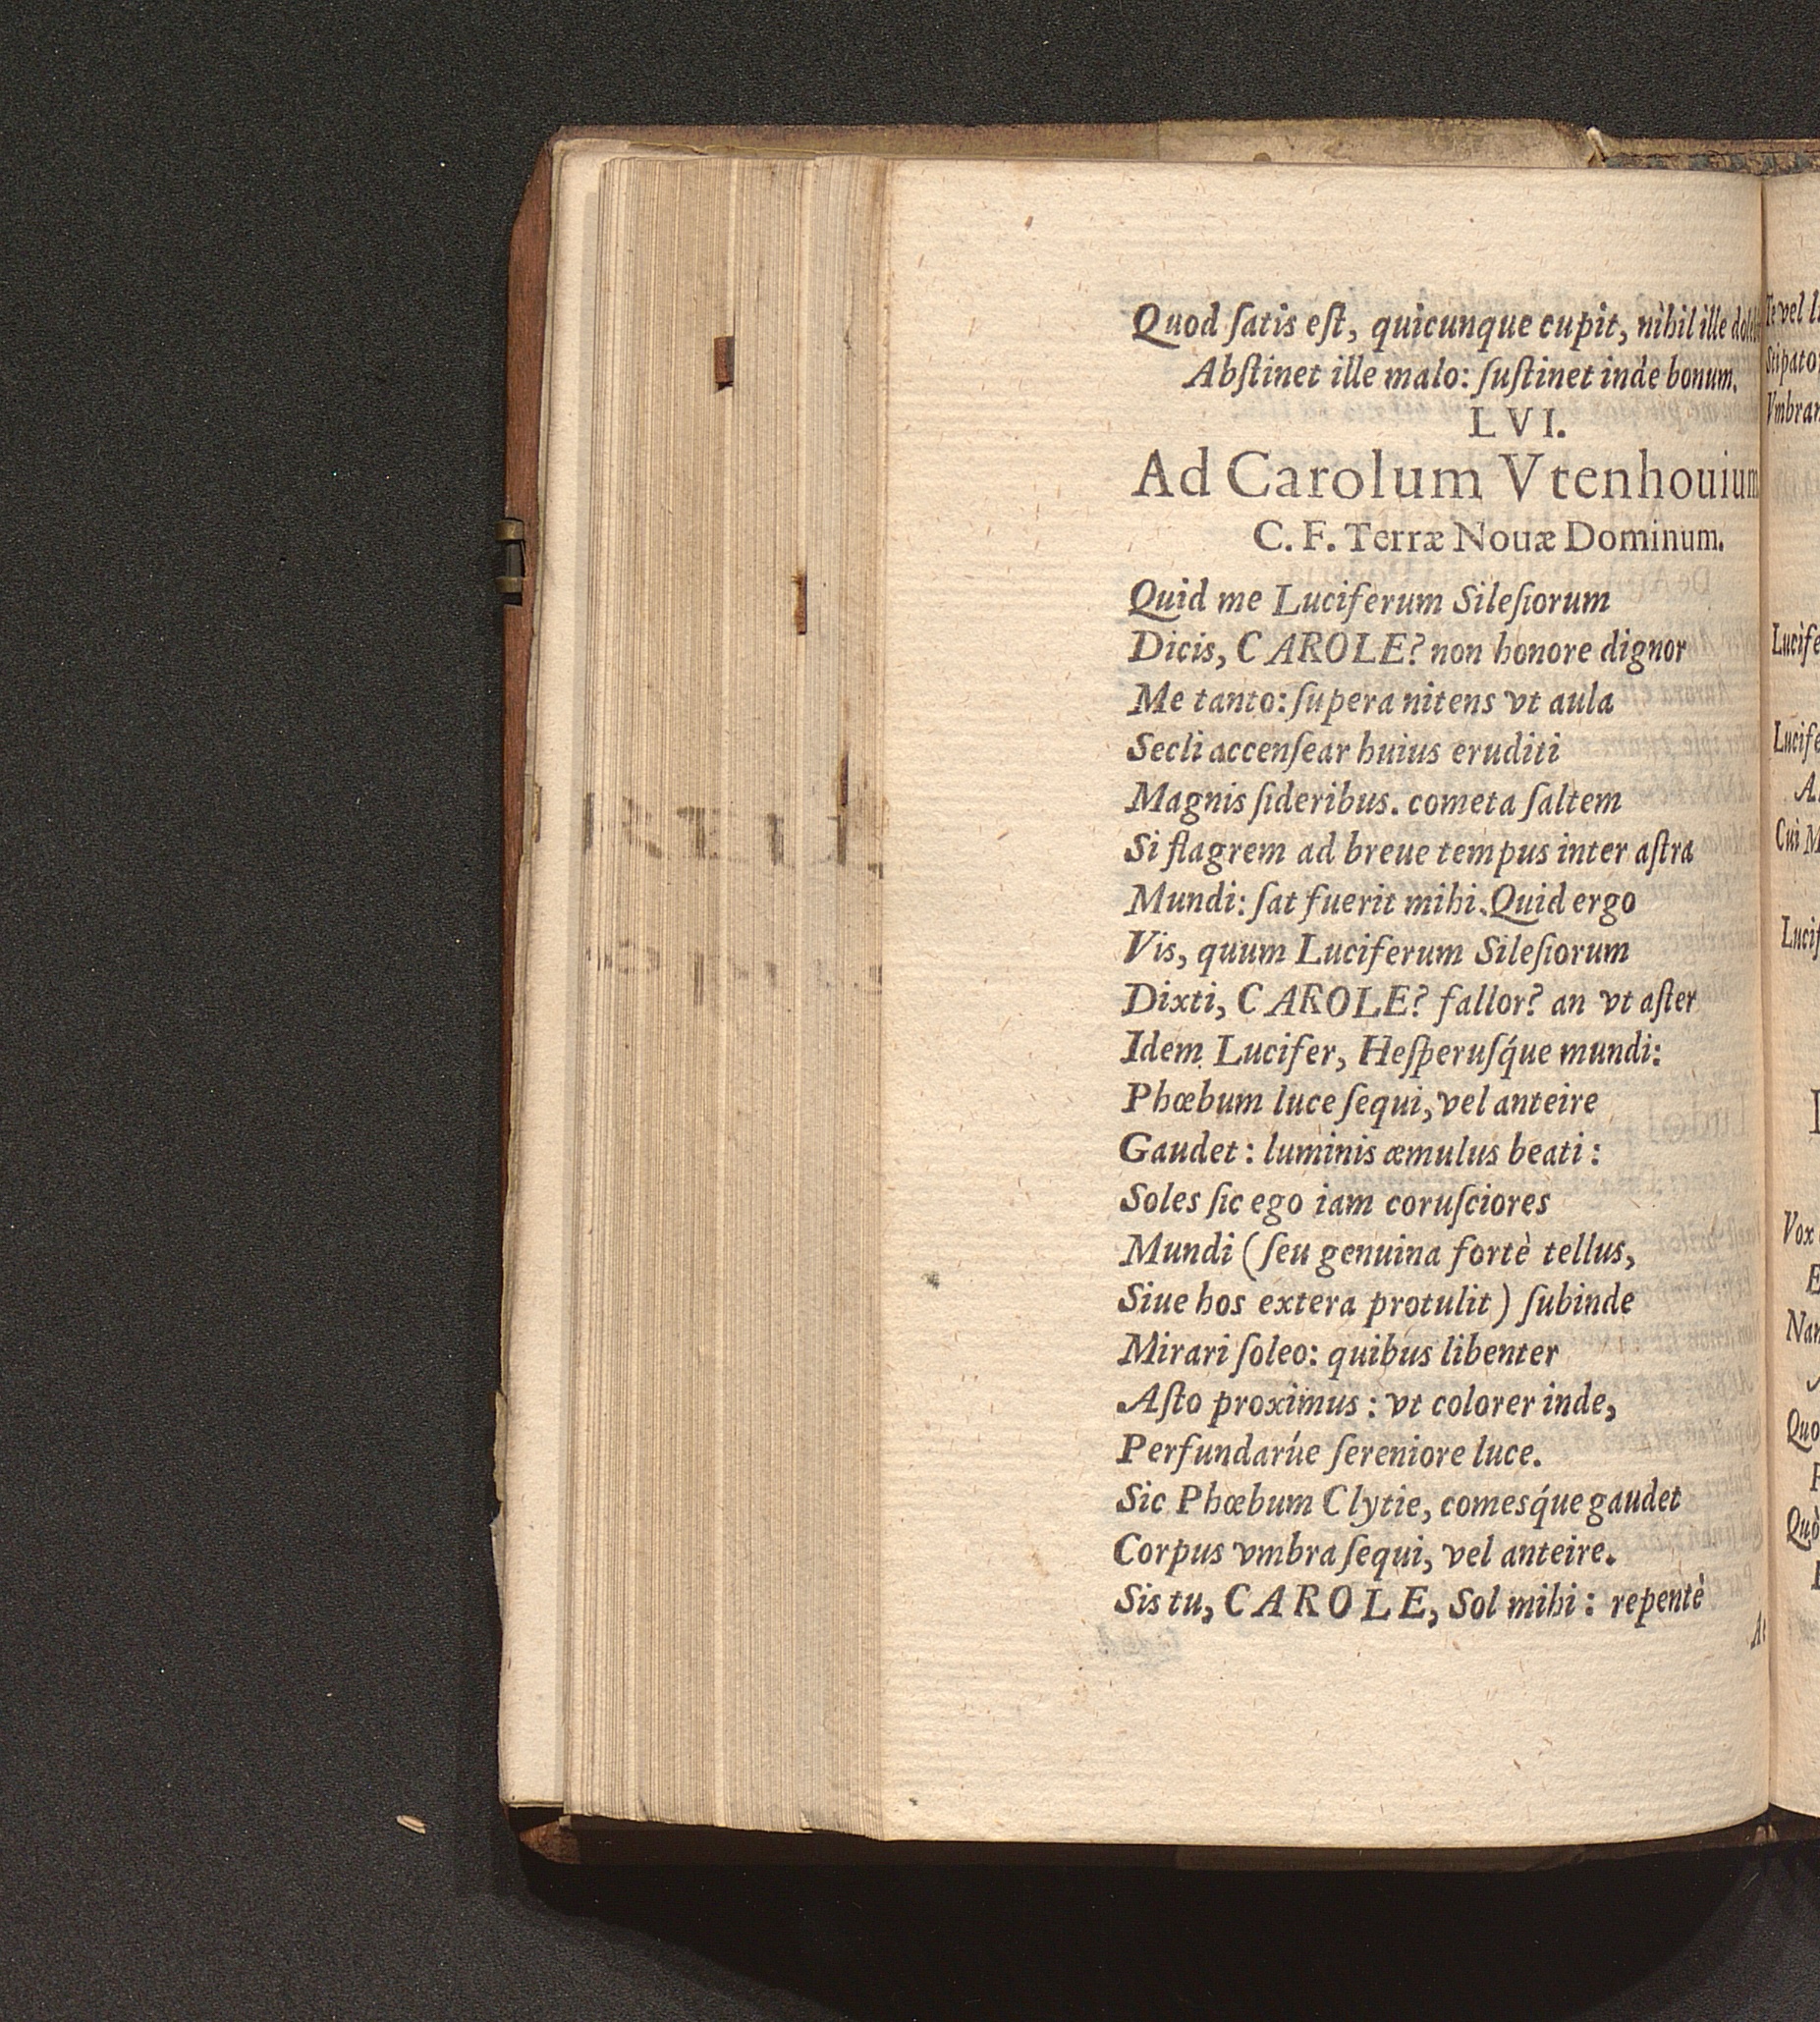 Quod ſatis eſt, quicunque cupit, nihil ille
Abſtinet ille malo: ſuſtinet inde bonum.
LVI.
Ad Carolum Vtenhouium
C. F. Terræ Nouæ Dominum.
Quid me Luciferum Sileſiorum
Dicis, CAROLE? non honore dignor
Me tanto: ſupera nitens vt aula
Secli accenſear huius eruditi
Magnis ſideribus. cometa ſaltem
Si flagrem ad breue tempus inter aſtra
Mundi: ſat fuerit mihi. Quid ergo
Vis, quum Luciferum Sileſiorum
Dixti, CAROLE? fallor? an vt aſter
Idem Lucifer, Heſperuſq́ue mundi:
Phœbum luce ſequi, vel anteire
Gaudet: luminis æmulus beati:
Soles ſic ego iam coruſciores
Mundi (ſeu genuina fortè tellus,
Siue hos extera protulit) ſubinde
Mirari ſoleo: quibus libenter
Aſto proximus: vt colorer inde,
Perfundarúe ſereniore luce.
Sic Phœbum Clytie, comesq́ue gaudet
Corpus vmbra ſequi, vel anteire.
Sis tu, CAROLE, Sol mihi: repentè
Te vel
Lucife
Lucife
Cui M
Lucif
Vox
Nam
Quo
Quò